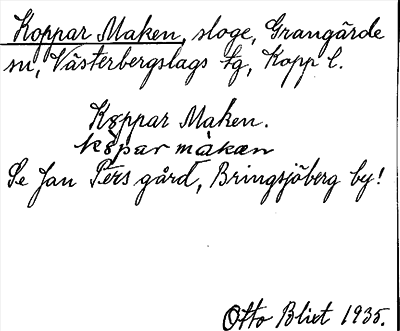 Koppar Maken, sloge, Grangärde
sn, Västerbergslags tg, Kopp l.
Koppar Maken.
kåpar màkan
Se Jan Pers gård, Bringsjöberg by!
Otto Blixt 1935.